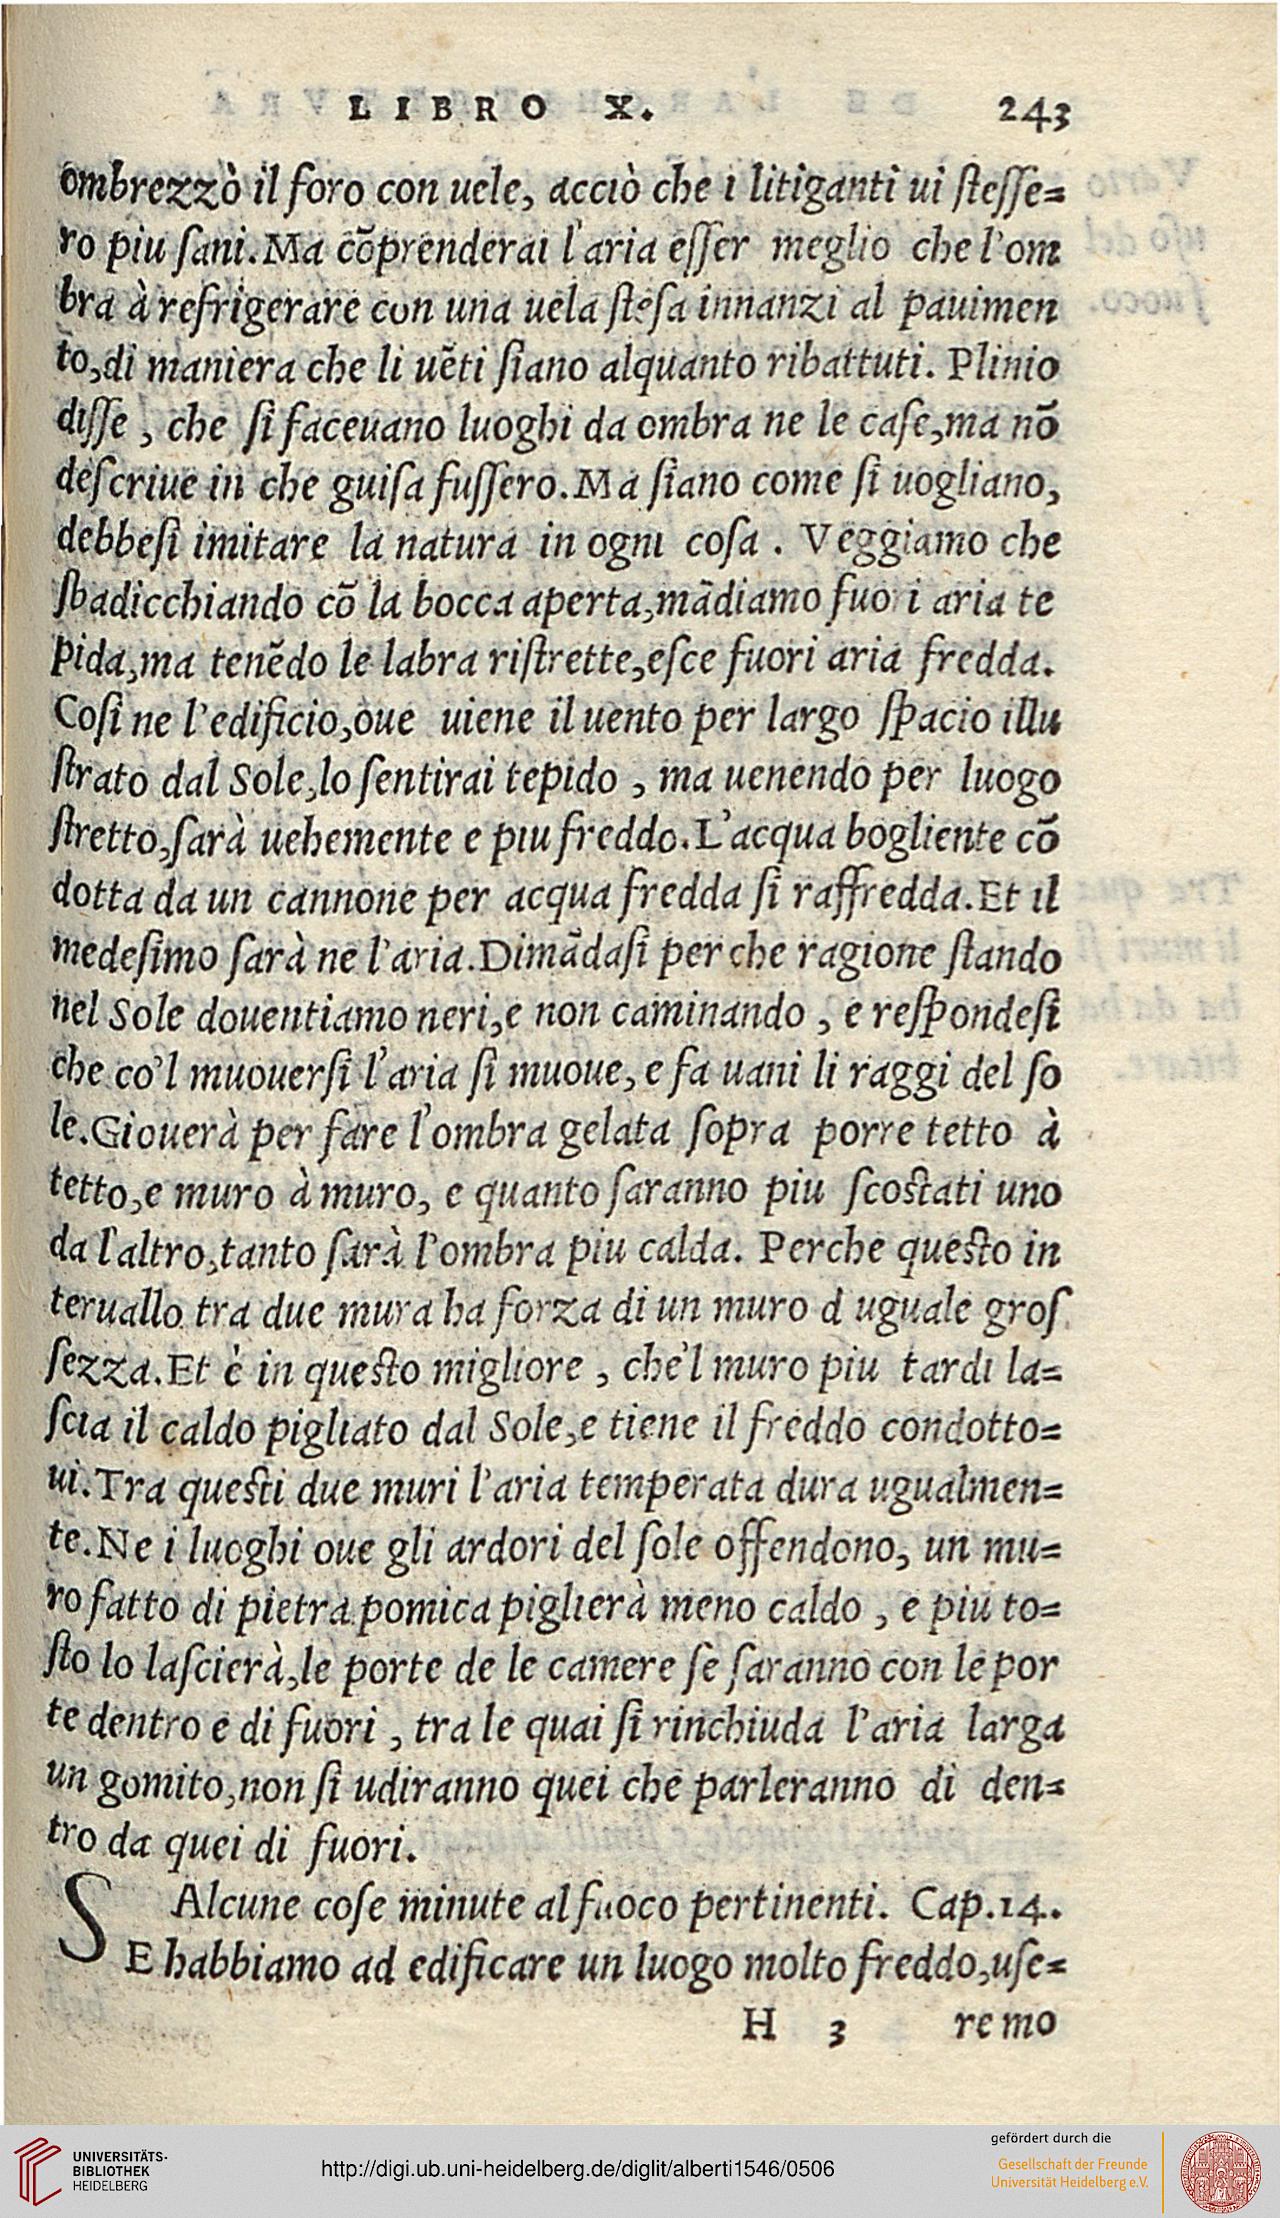 LIBRO X. 243
ombrezzò il foro con uele, acciò che i litiganti ui ſteſſe=
ro piu ſani. Ma cōprenderai l'aria eſſer meglio che l'om
bra à refrigerare con una uela ſteſa innanzi al pauimen
to, di maniera che li uēti ſiano alquanto ribattuti. Plinio
diſſe, che ſi faceuano luoghi da ombra ne le caſe, ma nō
deſcriue in che guiſa fuſſero. Ma ſiano come ſi uogliano,
debbeſi imitare la natura in ogni coſa. Veggiamo che
ſbadicchiando cō la bocca aperta, mādiamo fuori aria te
pida, ma tenēdo le labra riſtrette, eſce fuori aria fredda.
Coſi ne l'edificio, oue uiene il uento per largo ſpacio illu
ſtrato dal Sole, lo ſentirai tepido, ma uenendo per luogo
ſtretto, ſarà uehemente e piu freddo. L'acqua bogliente cō
dotta da un cannone per acqua fredda ſi raffredda. Et il
medeſimo ſarà ne l'aria. Dimādaſi per che ragione ſtando
nel Sole douentiamo neri, e non caminando, e reſpondeſi
che co'l muouerſi l'aria ſi muoue, e fa uani li raggi del ſo
le. Giouerà per fare l'ombra gelata ſopra porre tetto à
tetto, e muro à muro, e quanto ſaranno piu ſcoſtati uno
da l'altro, tanto ſarà l'ombra piu calda. Perche queſto in
teruallo tra due mura ha forza di un muro d uguale groſ
ſezza. Et è in queſto migliore, che'l muro piu tardi la=
ſcia il caldo pigliato dal Sole, e tiene il freddo condotto=
ui. Tra queſti due muri l'aria temperata dura ugualmen=
te. Ne i luoghi oue gli ardori del ſole offendono, un mu=
ro fatto di pietra pomica piglierà meno caldo, e piu to=
ſto lo laſcierà, le porte de le camere ſe ſaranno con le por
te dentro e di fuori, tra le quai ſi rinchiuda l'aria larga
un gomito, non ſi udiranno quei che parleranno di den=
tro da quei di fuori.
Alcune coſe minute al fuoco pertinenti. Cap. 14.
SE habbiamo ad edificare un luogo molto freddo, uſe=
H 3 remo
UNIVERSITÄTS-
BIBLIOTHEK
HEIDELBERG
http://digi.ub.uni-heidelberg.de/diglit/alberti1546/0506
gefördert durch die
Gesellschaft der Freunde
Universität Heidelberg e.V.